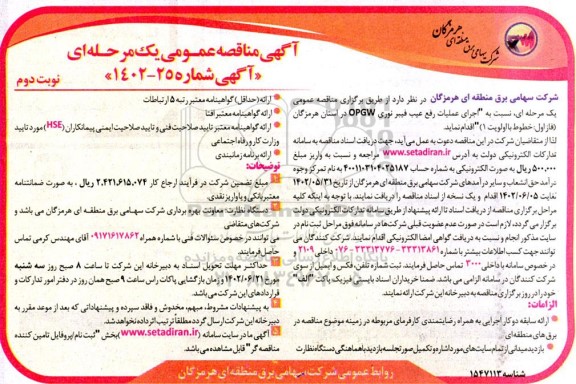 شرکت سهامی برق منطقه ای هرمزگان
آگهی مناقصه عمومی یک مرحله‌ای
«آگهی شماره ۲۵-۱۴۰۲»
نوبت دوم
شرکت سهامی برق منطقه ای هرمزگان در نظر دارد از طریق برگزاری مناقصه عمومی
یک مرحله ای، نسبت به "اجرای عملیات رفع عیب فیبر نوری OPGW در استان هرمزگان
(فاز اول: خطوط با اولویت ۱)" اقدام نماید.
لذا از متقاضیان شرکت در این مناقصه دعوت به عمل می آید، جهت دریافت اسناد مناقصه به سامانه
تدارکات الکترونیکی دولت به آدرس www.setadiran.ir مراجعه و نسبت به واریز مبلغ
۵۰۰,۰۰۰ ریال به صورت الکترونیکی به شماره حساب
به نام تمرکز وجوه
درآمد حق انشعاب و سایر درآمدهای شرکت سهامی برق منطقه ای هرمزگان از تاریخ ۱۴۰۲/۰۵/۳۱
لغایت ۱۴۰۲/۰۶/۰۵ اقدام و یک نسخه از اسناد مناقصه را دریافت نمایند. با توجه به اینکه کلیه
مراحل برگزاری مناقصه از دریافت اسناد تا ارائه پیشنهاد از طریق سامانه تدارکات الکترونیکی دولت
برگزار می گردد، لازم است در صورت عدم عضویت قبلی شرکت‌ها در سامانه فوق مراحل ثبت نام در
سایت مذکور انجام و نسبت به دریافت گواهی امضا الکترونیکی اقدام نمایند. شرکت کنندگان می
توانند جهت کسب اطلاعات بیشتر با شماره ۳۳۳۱۳۸۶۱ - ۳۳۳۱۳۷۷۶-۰۷۶ داخلی ۲۱۰۹ و
در خصوص سامانه با داخلی ۳۰۰۰ تماس حاصل فرمایند. ثبت شماره تلفن، فکس و ایمیل از سوی
شرکت کنندگان در سامانه الزامی می باشد. ضمنا خریداران اسناد بایستی فیزیک پاکت "الف"
خود را در روز برگزاری مناقصه به دبیرخانه این شرکت ارائه نمایند.
الزامات:
ارائه سابقه دو کار اجرایی به همراه رضایتمندی کارفرمای مربوطه در زمینه موضوع مناقصه در
برق های منطقه ای
بازدید میدانی از تمام سایت های مورد اشاره و تکمیل صورتجلسه بازدید با هماهنگی دستگاه نظارت
ارائه (حداقل) گواهینامه معتبر رتبه ۵ ارتباطات
ارائه گواهینامه معتبر افتا
ارائه گواهینامه معتبر تایید صلاحیت فنی و تایید صلاحیت ایمنی پیمانکاران (HSE) مورد تایید
وزارت کار و رفاه اجتماعی
ارائه برنامه زمانبندی
توضیحات:
مبلغ تضمین شرکت در فرآیند ارجاع کار ۲,۴۲۱,۶۱۵,۰۷۴ ریال، به صورت ضمانتنامه
معتبر بانکی و یا واریز نقدی
دستگاه نظارت، معاونت بهره برداری شرکت سهامی برق منطقه ای هرمزگان می باشد و
شرکت های متقاضی
می توانند در خصوص سئوالات فنی با شماره همراه ۰۹۱۷۱۶۱۷۸۶۲ آقای مهندس کرمی تماس
حاصل فرمایند.
حداکثر مهلت تحویل اسناد به دبیرخانه این شرکت تا ساعت ۸ صبح روز سه شنبه
مورخ ۱۴۰۲/۰۶/۲۱ و زمان بازگشایی پاکات راس ساعت ۹ صبح همان روز در دفتر امور تدارکات و
قراردادهای این شرکت می باشد.
به پیشنهادات مشروط، مبهم، مخدوش و فاقد سپرده و پیشنهاداتی که بعد از موعد مقرر به
دبیرخانه این شرکت ارسال گردد مطلقا ترتیب اثر داده نخواهد شد.
آگهی ما در سایت سامانه (www.setadiran.ir) بخش "ثبت نام/پروفایل تامین کننده
مناقصه گر" قابل مشاهده می باشد.
شناسه ۱۵۴۷۱۱۳
روابط عمومی شرکت سهامی برق منطقه ای هرمزگان